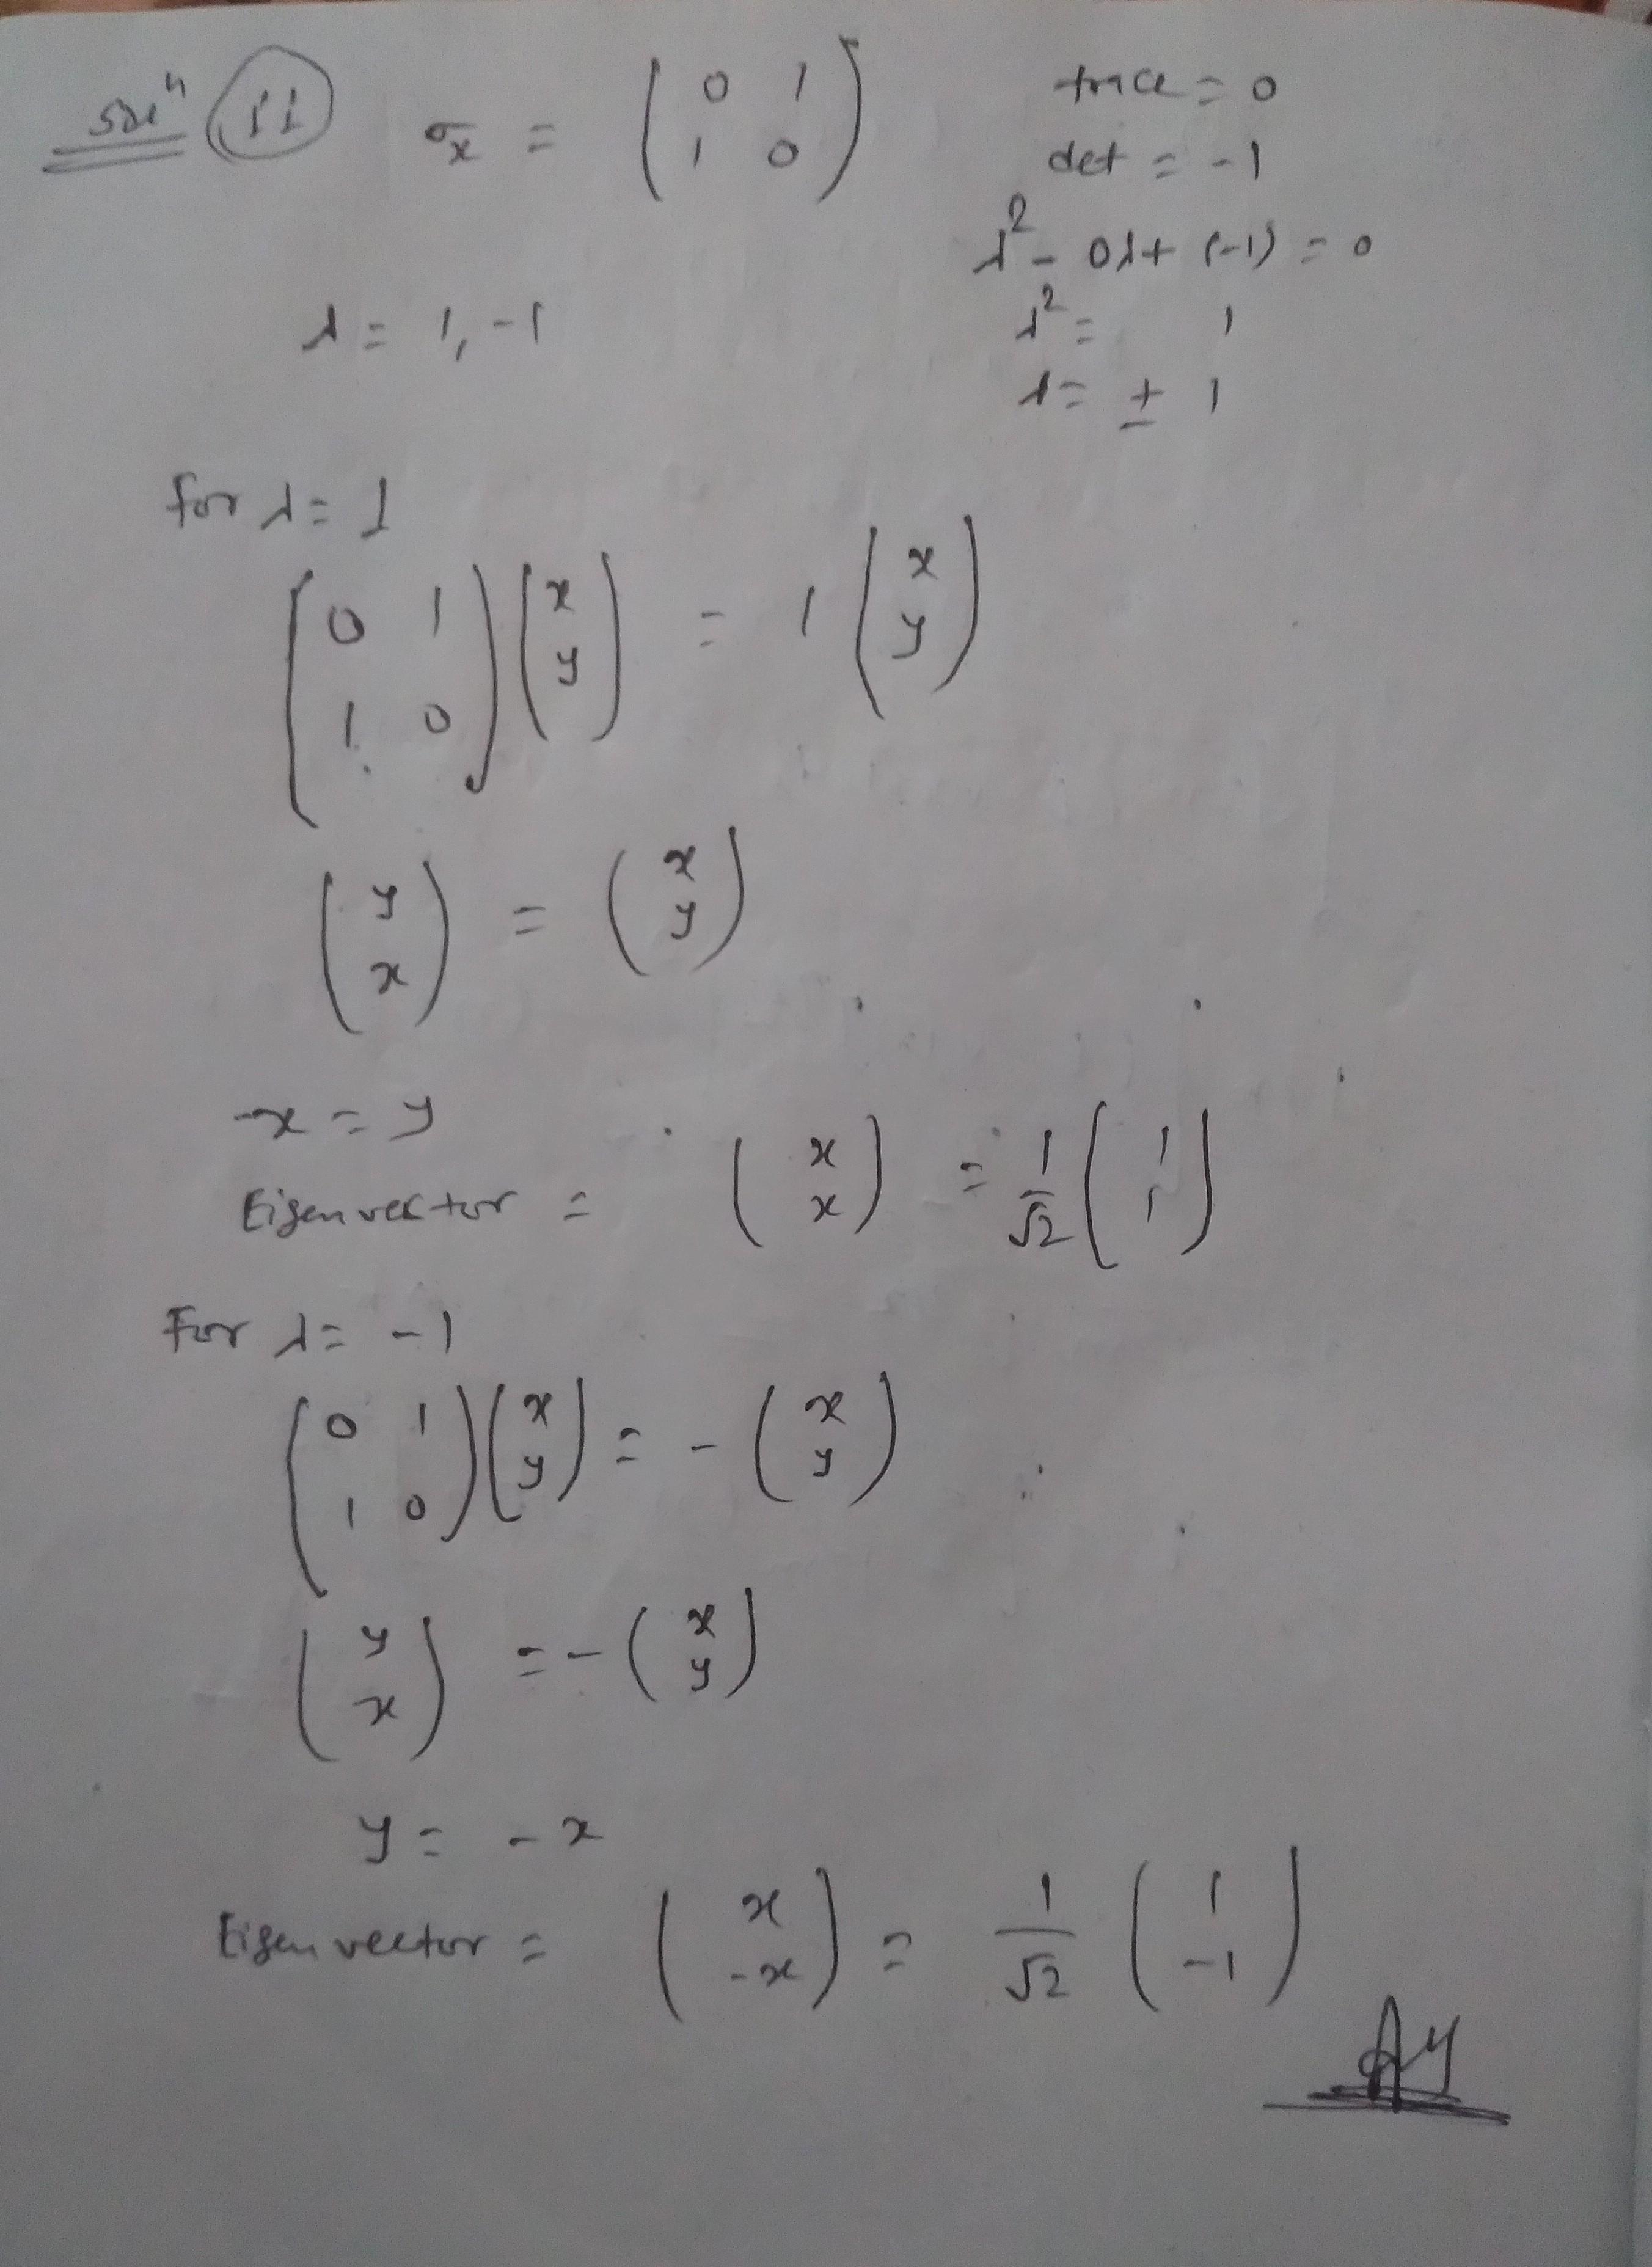 Solⁿ (11) σₓ = ( 0 1 ; 1 0 ) trace = 0
det = -1
λ² - 0λ + (-1) = 0
λ = 1, -1 λ² = 1
λ = ± 1
For λ = 1
( 0 1 ; 1 0 ) ( x ; y ) = 1 ( x ; y )
( y ; x ) = ( x ; y )
x = y
Eigenvector = ( x ; x ) = 1/√2 ( 1 ; 1 )
For λ = -1
( 0 1 ; 1 0 ) ( x ; y ) = - ( x ; y )
( y ; x ) = - ( x ; y )
y = - x
Eigenvector = ( x ; -x ) = 1/√2 ( 1 ; -1 )